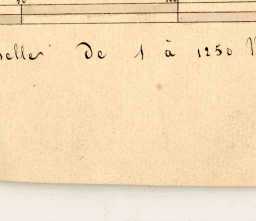 helle de 1 à 1250